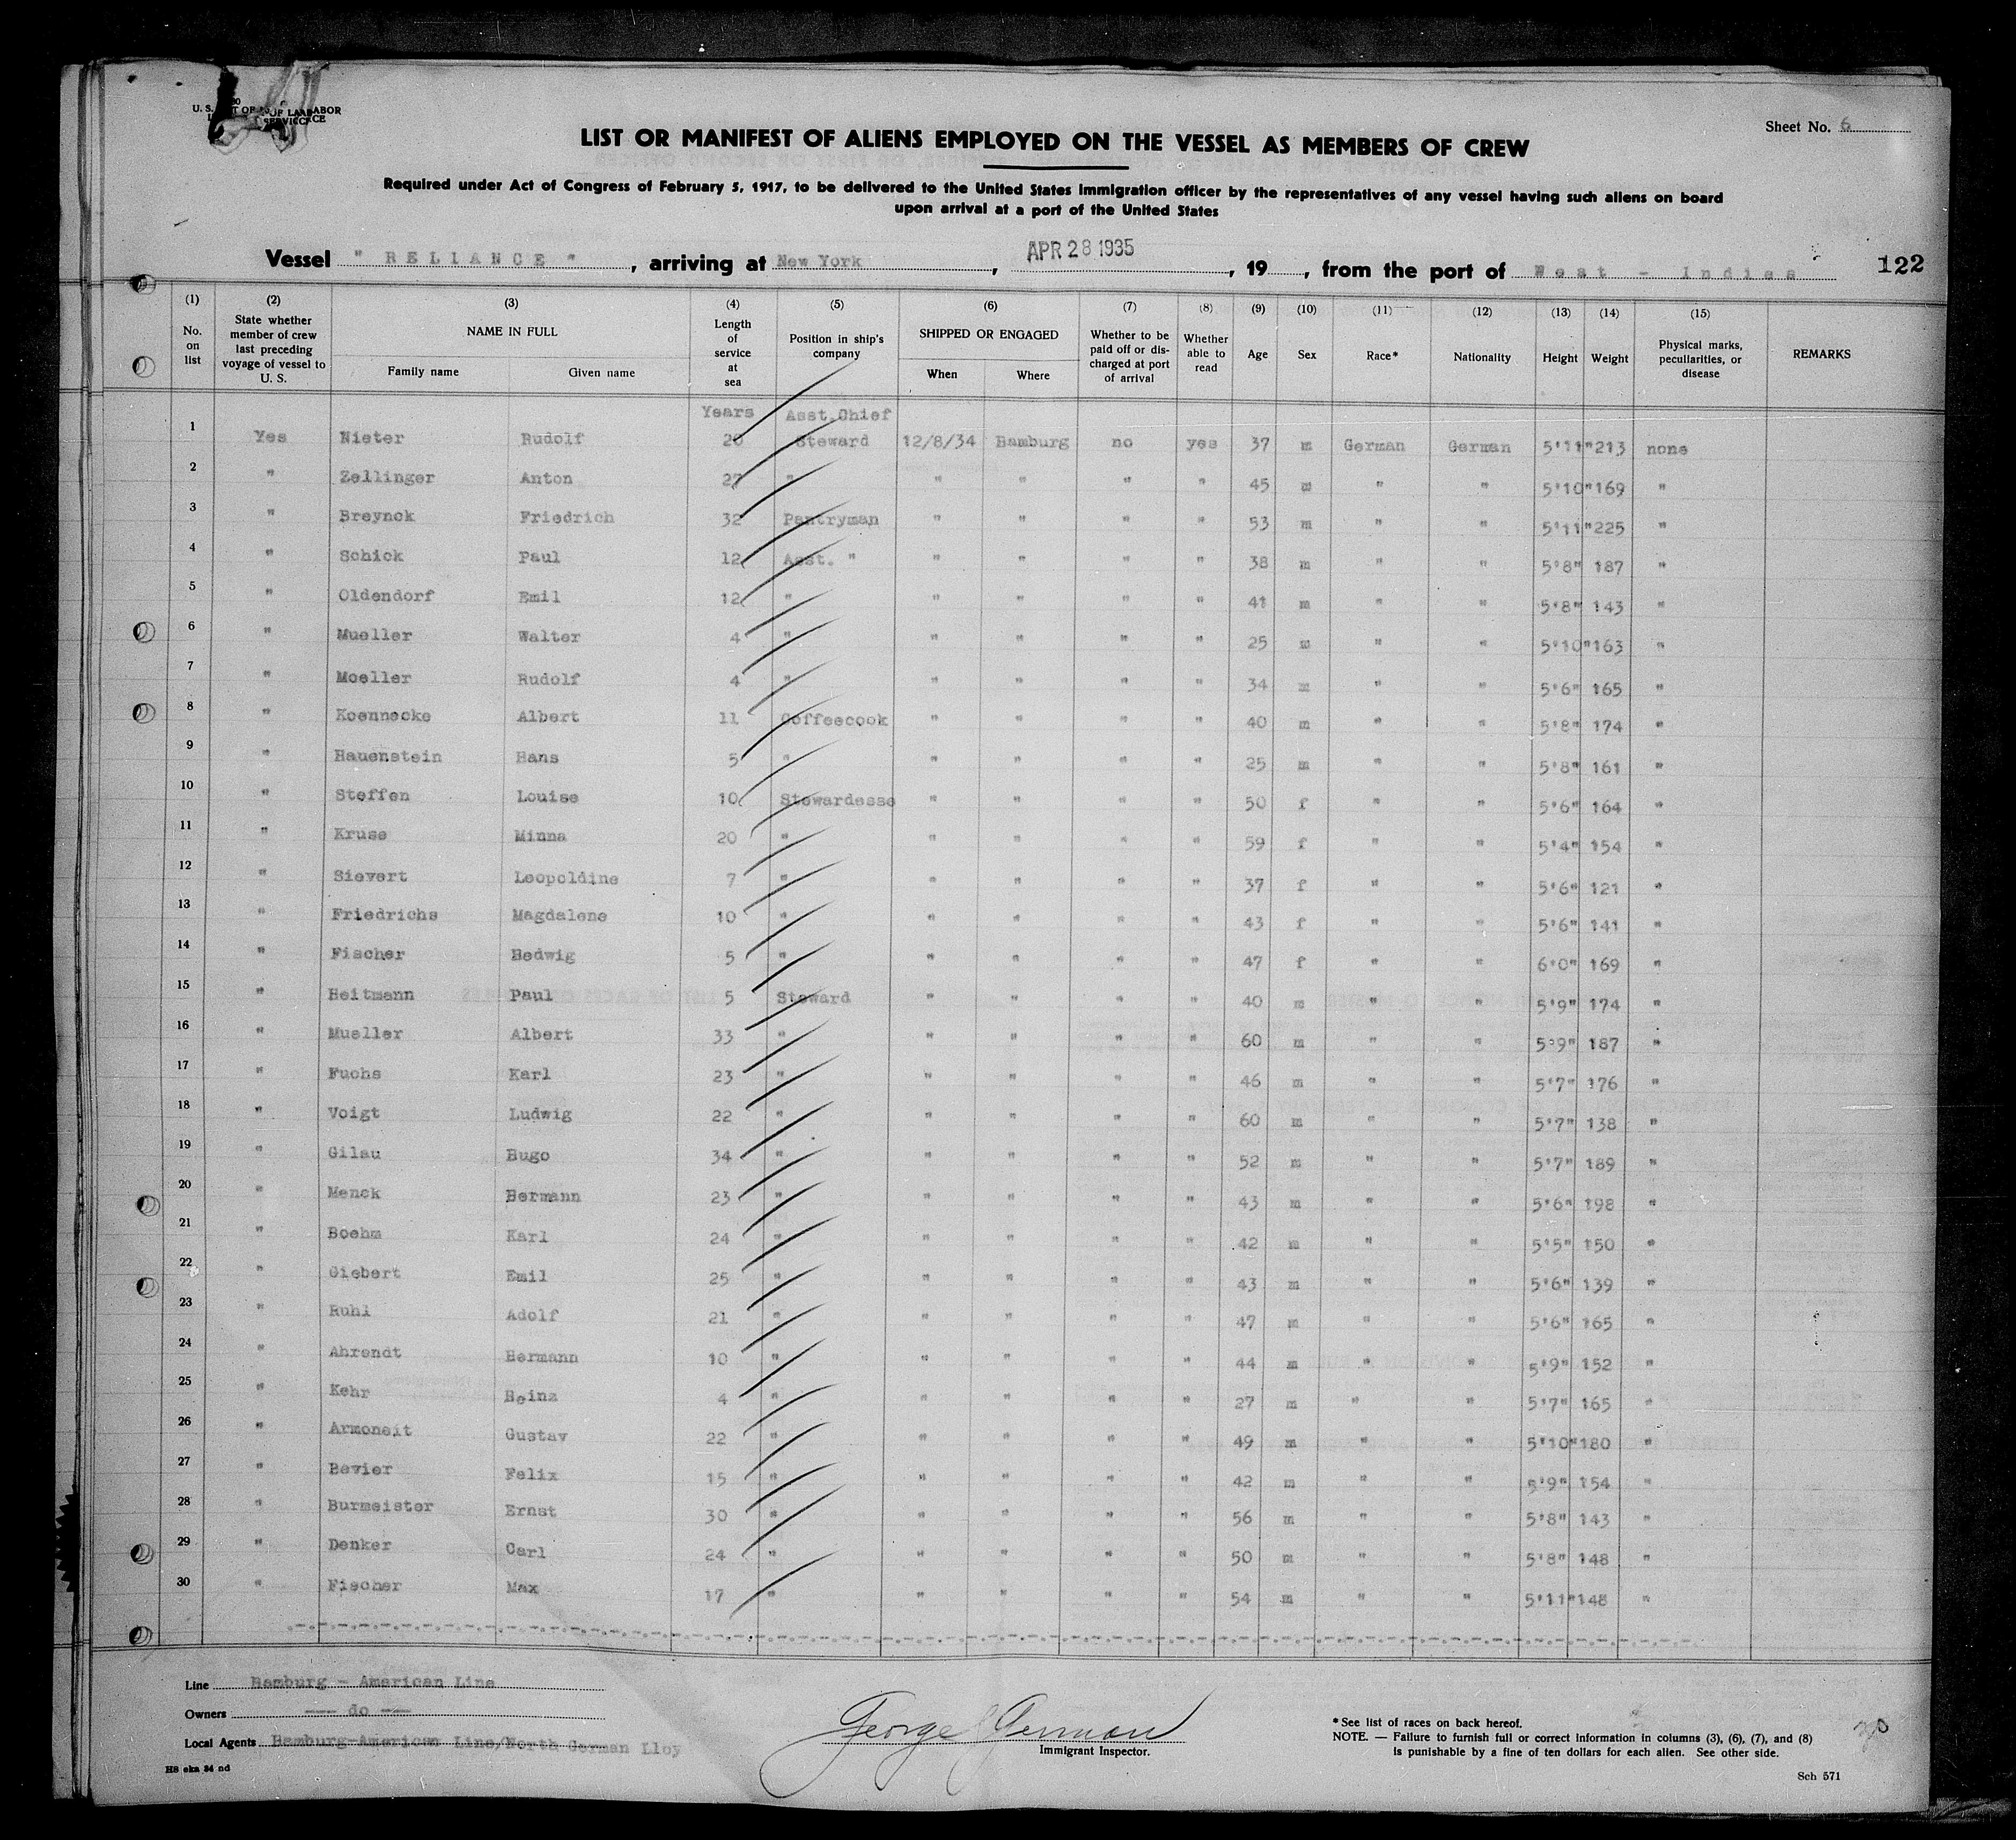 Sheet No. 6
LIST OR MANIFEST OF ALIENS EMPLOYED ON THE VESSEL AS MEMBERS OF CREW
Required under Act of Congress of February 5, 1917, to be delivered to the United States Immigration officer by the representatives of any vessel having such aliens on board
upon arrival at a port of the United States
Vessel " RELIANCE " , arriving at New York , APR 28 1935 , 19 , from the port of West - Indies 122
(1) No. on list (2) State whether member of crew last preceding voyage of vessel to U. S. (3) NAME IN FULL Family name Given name (4) Length of service at sea (5) Position in ship's company (6) SHIPPED OR ENGAGED When Where (7) Whether to be paid off or discharged at port of arrival (8) Whether able to read (9) Age (10) Sex (11) Race* (12) Nationality (13) Height (14) Weight (15) Physical marks, peculiarities, or disease REMARKS
Years Asst.Chief
1 Yes Nieter Rudolf 20 Steward 12/8/34 Hamburg no yes 37 m German German 5'11" 213 none
2 " Zellinger Anton 27 " " " " " 45 m " " 5'10" 169 "
3 " Breynck Friedrich 32 Pantryman " " " " 53 m " " 5'11" 225 "
4 " Schick Paul 12 Asst. " " " " " 38 m " " 5'8" 187 "
5 " Oldendorf Emil 12 " " " " " 41 m " " 5'8" 143 "
6 " Mueller Walter 4 " " " " " 25 m " " 5'10" 163 "
7 " Moeller Rudolf 4 " " " " " 34 m " " 5'6" 165 "
8 " Koennecke Albert 11 Coffeecook " " " " 40 m " " 5'8" 174 "
9 " Hauenstein Hans 5 " " " " " 25 m " " 5'8" 161 "
10 " Steffen Louise 10 Stewardesse " " " " 50 f " " 5'6" 164 "
11 " Kruse Minna 20 " " " " " 59 f " " 5'4" 154 "
12 " Sievert Leopoldine 7 " " " " " 37 f " " 5'6" 121 "
13 " Friedrichs Magdalene 10 " " " " " 43 f " " 5'6" 141 "
14 " Fischer Hedwig 5 " " " " " 47 f " " 6'0" 169 "
15 " Heitmann Paul 5 Steward " " " " 40 m " " 5'9" 174 "
16 " Mueller Albert 33 " " " " " 60 m " " 5'9" 187 "
17 " Fuchs Karl 23 " " " " " 46 m " " 5'7" 176 "
18 " Voigt Ludwig 22 " " " " " 60 m " " 5'7" 138 "
19 " Gilau Hugo 34 " " " " " 52 m " " 5'7" 189 "
20 " Menck Hermann 23 " " " " " 43 m " " 5'6" 198 "
21 " Boehm Karl 24 " " " " " 42 m " " 5'5" 150 "
22 " Giebert Emil 25 " " " " " 43 m " " 5'6" 139 "
23 " Ruhl Adolf 21 " " " " " 47 m " " 5'6" 165 "
24 " Ahrendt Hermann 10 " " " " " 44 m " " 5'9" 152 "
25 " Kehr Heinz 4 " " " " " 27 m " " 5'7" 165 "
26 " Armoneit Gustav 22 " " " " " 49 m " " 5'10" 180 "
27 " Bevier Felix 15 " " " " " 42 m " " 5'9" 154 "
28 " Burmeister Ernst 30 " " " " " 56 m " " 5'8" 143 "
29 " Denker Carl 24 " " " " " 50 m " " 5'8" 148 "
30 " Fischer Max 17 " " " " " 54 m " " 5'11" 148 "
Line Hamburg - American Line
Owners --- do ---
Local Agents Hamburg-American Line/North German Lloy
HS eka 34 nd
George German
Immigrant Inspector.
*See list of races on back hereof.
NOTE. — Failure to furnish full or correct information in columns (3), (6), (7), and (8)
is punishable by a fine of ten dollars for each alien. See other side.
Sch 571